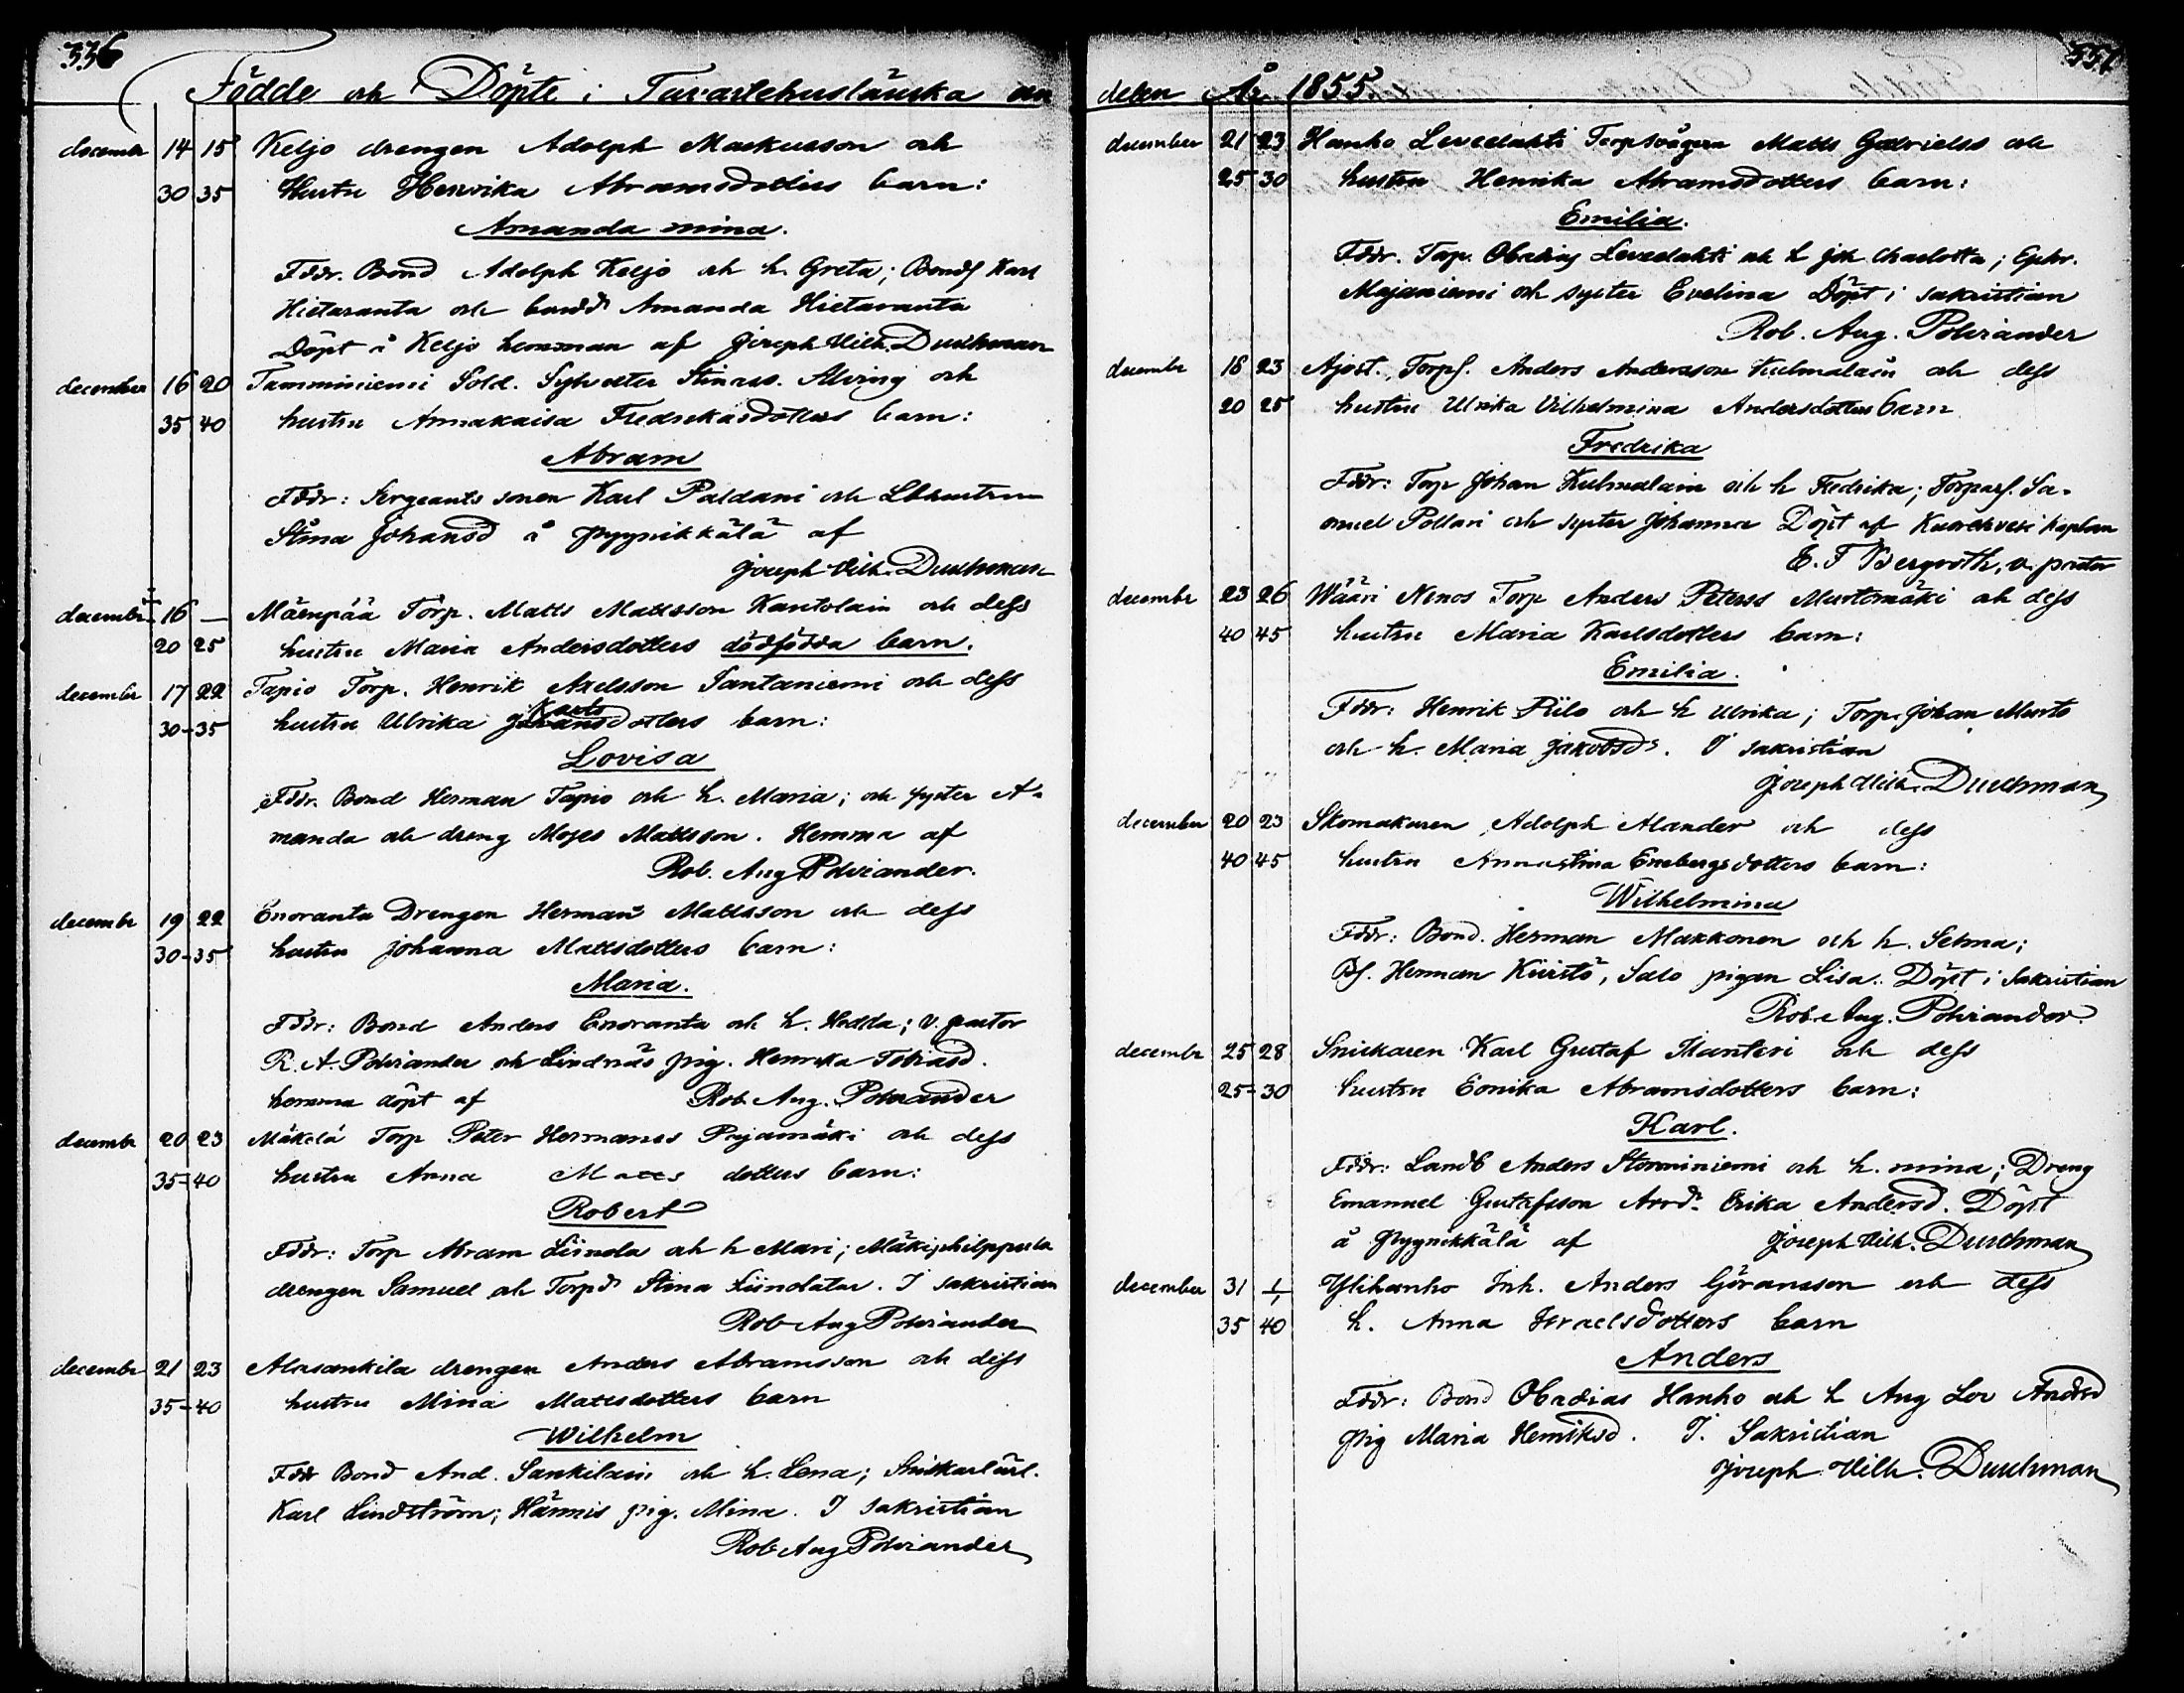 336
Födde och Döpte i Tavastehuslänska an
december 14 15 Keljo drengen Adolph Markusson och
30 35 hustru Henrika Abramsdotters barn:
Amanda mina.
Fddr. Bond Adolph Keljo och h. Greta; Bonds Karl
Hietaranta och bondd Amanda Hietaranta
Döpt å Keljo hemman af Joseph Vilh. Duchman
december 16 20 Tamminiemi Sold. Sylvester Alving och
35 40 hustru Annakaisa Fredrikasdotters barn:
Abram
Fddr: Sergeants sonen Karl Paldani och
Stina Johansd å Pyynikkälä af
Joseph Vilh. Duchman
december 16 — Mäenpää Torp. Matts Mattsson Kantolain och dess
20 25 hustru Maria Andersdotters dödfödda barn.
december 17 22 Tapio Torp. Henrik Axelsson Santaniemi och dess
Karls
30-35 hustru Ulrika Johansdotters barn:
Lovisa
Fddr. Bond Herman Tapio och h. Maria; och syster A-
manda och dreng Moses Mattsson. Hemma af
Rob. Aug Polviander.
december 19 22 Enoranta Drengen Herman Mattsson och dess
30-35 hustru Johanna Mattsdotters barn:
Maria.
Fddr: Bond Anders Enoranta och h. Hedda; v. pastor
R. A. Polviander och Lindnäs pig. Henrika Tobiasd.
hemma döpt af Rob. Aug. Polviander
december 20 23 Mäkelä Torp Peter Hermanss Pajamäki och dess
35=40 hustru Anna Matts dotters barn:
Robert
Fddr: Torp Abram Liinola och h Mari; Mäkiphilppula
drengen Samuel och Torpd Stina Liinolatar. I sakristian
Rob Aug Polviander
december 21 23 Alasankila drengen Anders Abramsson och dess
35=40 hustru Mina Mattsdotters barn
Wilhelm
Fddr Bond And. Sankilain och h. Lena;
Karl Lindström; Hännis pig. Mina. I sakristian
Rob Aug Polviander
337
deben År 1855.
december 21 23 Hanho Levedahti Torpsvågern Matts Gabrielss och
25 30 hustru Henrika Abramsdotters barn:
Emilia.
Fddr. Torp. Obadias Levedahti och h Joh Charlotta; Ephr.
Majaniemi och syster Evelina Döpt i sakristian
Rob. Aug. Polviander
december 18 23 Ajost. Torps. Anders Andersson Kulmalain och dess
20 25 hustru Ulrika Vilhelmina Andersdotters barn
Fredrika
Fddr: Torp Johan Kulmalain och h Fredrika; Torpars. Sa-
muel Pollari och syster Johanna Döpt af Kuorehvesi kaplan
E. F Bergroth, v. pastor
december 23 26 Wääri Nenos Torp Anders Peterss Murtomäki och dess
40 45 hustru Maria Karlsdotters barn:
Emilia.
Fddr: Henrik Piilo och h Ulrika; Torp. Johan Murto
och h. Maria Jakobsdr. I sakristian
Joseph Vilh. Duchman
december 20 23 Skomakaren Adolph Alander och dess
40 45 hustru Annastina Enebergsdotters barn:
Wilhelmina
Fddr: Bond. Herman Makkonen och h. Selma;
Bs. Herman Kiiristö, Salo pigan Lisa. Döpt i Sakristian
Rob. Aug. Polviander.
december 25 28 Snickaren Karl Gustaf Manteri och dess
25=30 hustru Eonika Abramsdotters barn:
Karl.
Fddr: Landb Anders Storminiemi och h. mina; Dreng
Emanuel Gustafsson Arvd. Erika Andersd. Döpt
å Pyynikkälä af Joseph Vilh. Duchman
december 31 1/1 Ylihanho Inh. Anders Göransson och dess
35 40 h. Anna Israelsdotters barn
Anders
Fddr: Bond Obadias Hanho och h Aug Lov Andrsd
pig Maria Henriksd. I. Sakristian
Joseph Vilh. Duchman